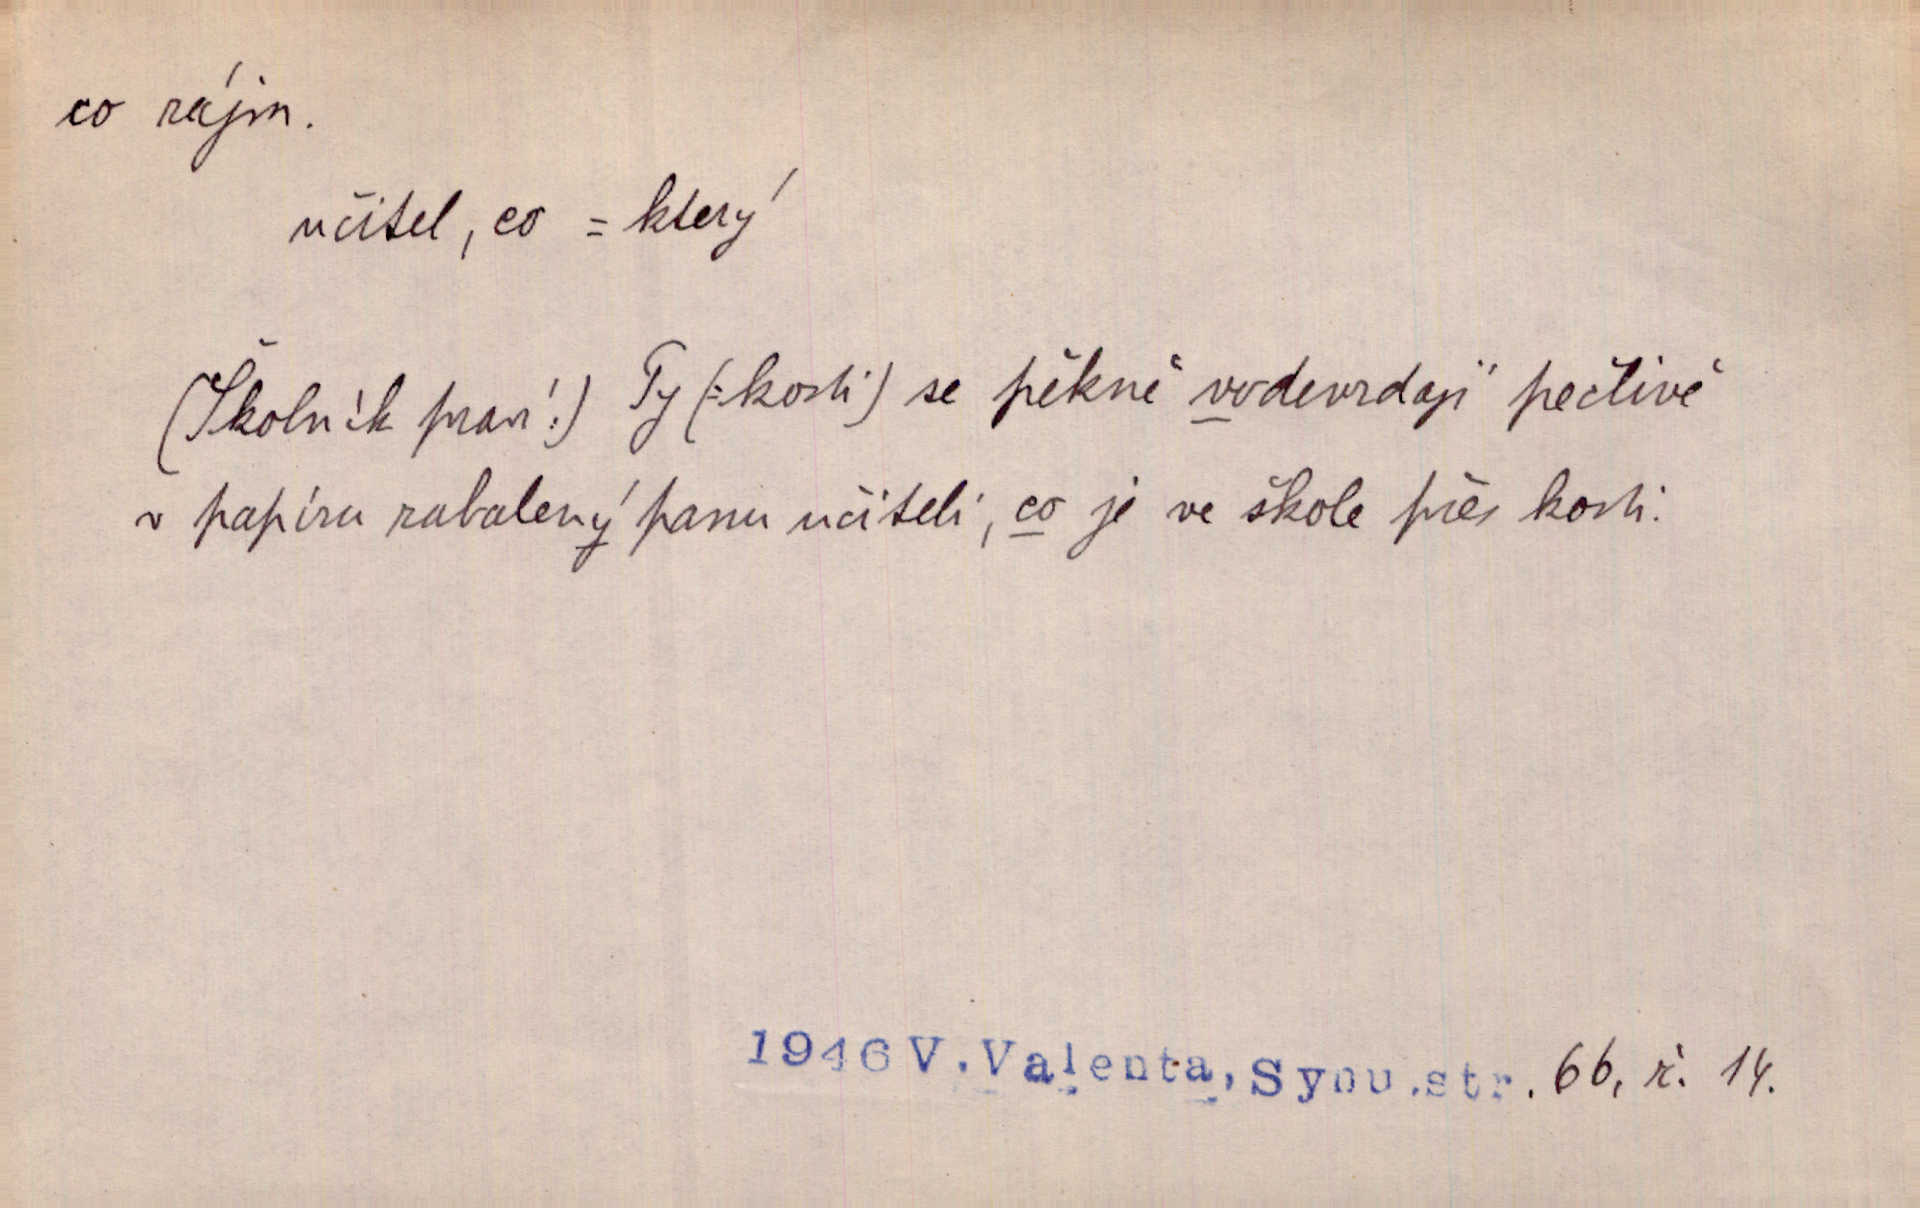 co zájm.
učitel, co = který
(Školník praví:) Ty (=kosti) se pěkně vodevzdají pečlivě
v papíru zabalený panu učiteli, co je ve škole přes kosti.
1946 V. Valenta, Synu. str. 66, ř. 14.